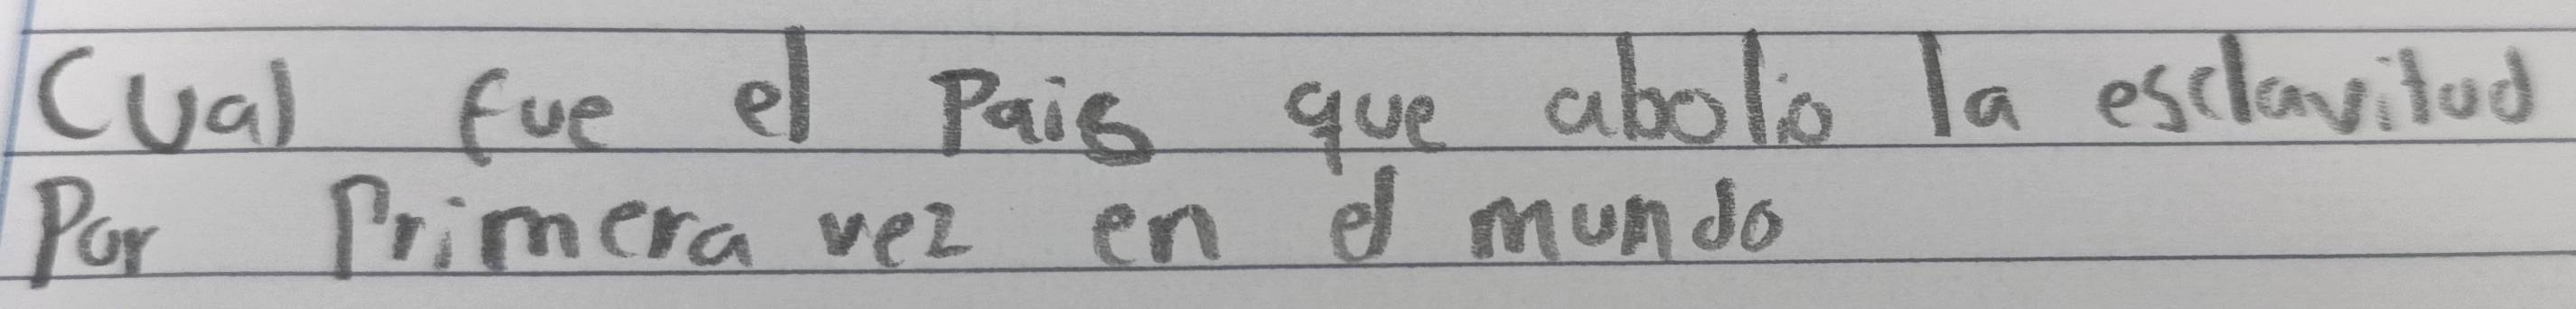 Cual fue el Pais que abolio la esclavitud
Por Primera vez en el mundo